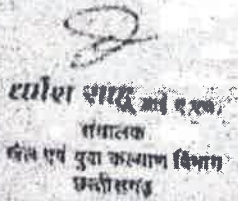 राजेश शाहू आई.ए.एस.
संचालक
खेल एवं युवा कल्याण विभाग
छत्तीसगढ़